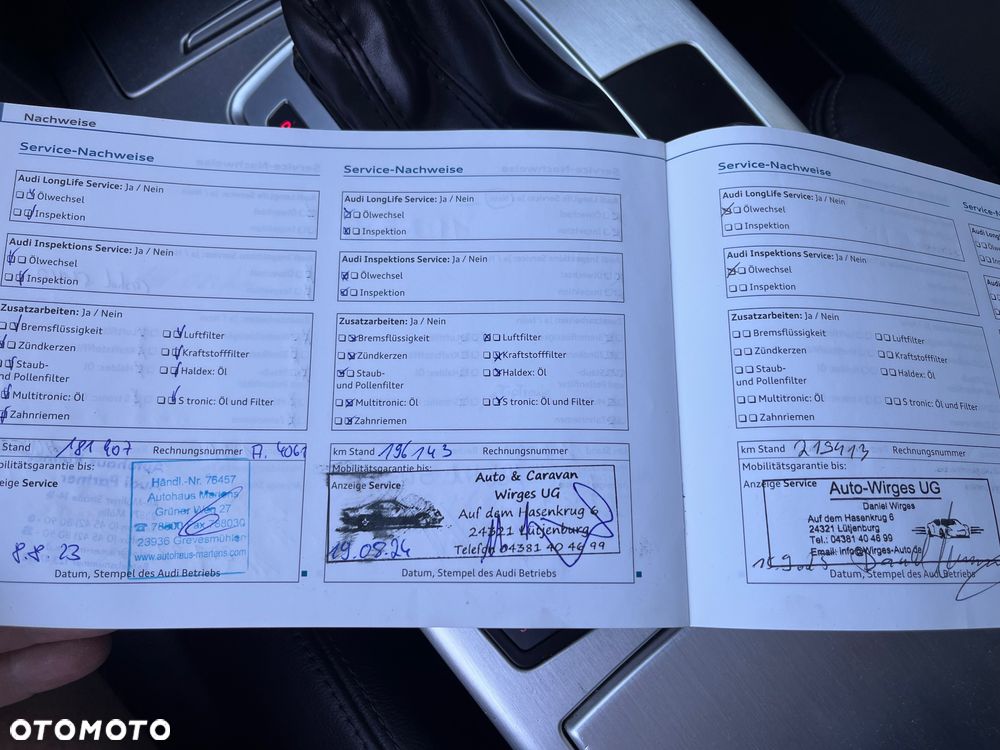 Nachweise
Service-Nachweise
Audi LongLife Service: Ja / Nein
Ölwechsel
Inspektion
Audi Inspektions Service: Ja / Nein
Ölwechsel
Inspektion
Zusatzarbeiten: Ja / Nein
Bremsflüssigkeit
Luftfilter
Zündkerzen
Kraftstofffilter
Staub-
nd Pollenfilter
Haldex: Öl
Multitronic: Öl
S tronic: Öl und Filter
Zahnriemen
Stand 181 907 Rechnungsnummer A. 4061
obilitätsgarantie bis:
zeige Service
Händl.-Nr. 76457
Autohaus Martens
Grüner Weg 27
23936 Grevesmühlen
www.autohaus-martens.com
8.8.23
Datum, Stempel des Audi Betriebs
Service-Nachweise
Audi LongLife Service: Ja / Nein
Ölwechsel
Inspektion
Audi Inspektions Service: Ja / Nein
Ölwechsel
Inspektion
Zusatzarbeiten: Ja / Nein
Bremsflüssigkeit
Luftfilter
Zündkerzen
Kraftstofffilter
Staub-
und Pollenfilter
Haldex: Öl
Multitronic: Öl
S tronic: Öl und Filter
Zahnriemen
km Stand 196143 Rechnungsnummer
Mobilitätsgarantie bis:
Anzeige Service
Auto & Caravan
Wirges UG
Auf dem Hasenkrug 6
24321 Lütjenburg
Telefon 04381 40 46 99
19.08.24
Datum, Stempel des Audi Betriebs
Service-Nachweise
Audi LongLife Service: Ja / Nein
Ölwechsel
Inspektion
Audi Inspektions Service: Ja / Nein
Ölwechsel
Inspektion
Zusatzarbeiten: Ja / Nein
Bremsflüssigkeit
Luftfilter
Zündkerzen
Kraftstofffilter
Staub-
und Pollenfilter
Haldex: Öl
Multitronic: Öl
S tronic: Öl und Filter
Zahnriemen
km Stand 219413 Rechnungsnummer
Mobilitätsgarantie bis:
Anzeige Service
Auto-Wirges UG
Daniel Wirges
Auf dem Hasenkrug 6
24321 Lütjenburg
Tel.: 04381 40 46 99
Email: info@Wirges-Auto.de
Datum, Stempel des Audi Betriebs
OTOMOTO